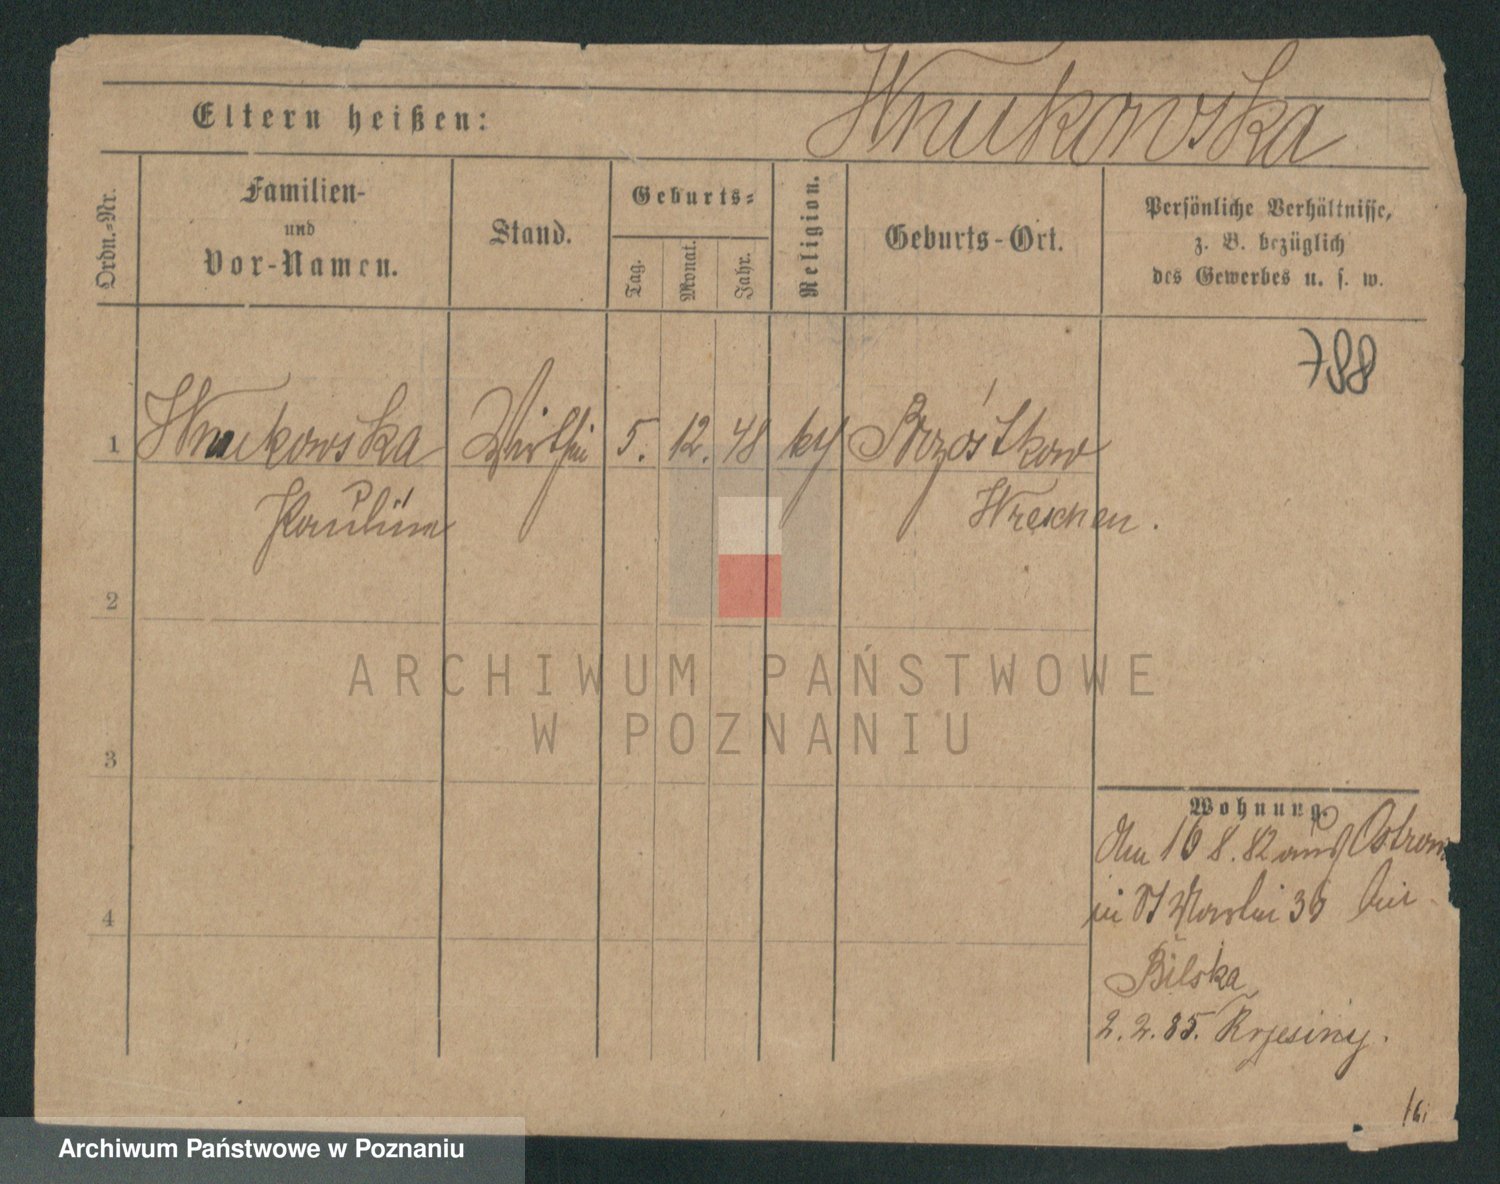 Eltern heißen: Wnukowska
Ordn.-Nr.
Familien-
und
Vor-Namen.
Stand.
Geburts-
Tag.
Monat.
Jahr.
Religion.
Geburts-Ort.
Persönliche Verhältnisse,
z. B. bezüglich
des Gewerbes u. s. w.
788
1 Wnukowska Wirthin 5. 12. 48 kth Brzóstkow
Pauline Wreschen.
2
3
4
Wohnung.
Am 16 8. 82 aus Ostrow
in St Martin 36 bei
Bilska
2. 2. 85. Krzesiny.
ARCHIWUM PAŃSTWOWE
W POZNANIU
Archiwum Państwowe w Poznaniu